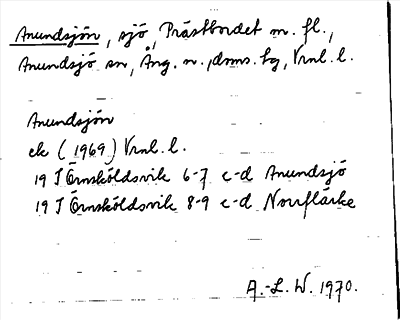 Anundsjön, sjö, Prästbordet m. fl.,
Anundsjö sn, Ång. n., doms. hg, Vrnl. l.
Anundsjön
ek (1969) Vrnl. l.
19 I Örnsköldsvik 6-7 c-d Anundsjö
19 I Örnsköldsvik 8-9 c-d Norrflärke
A.-L. W. 1970.